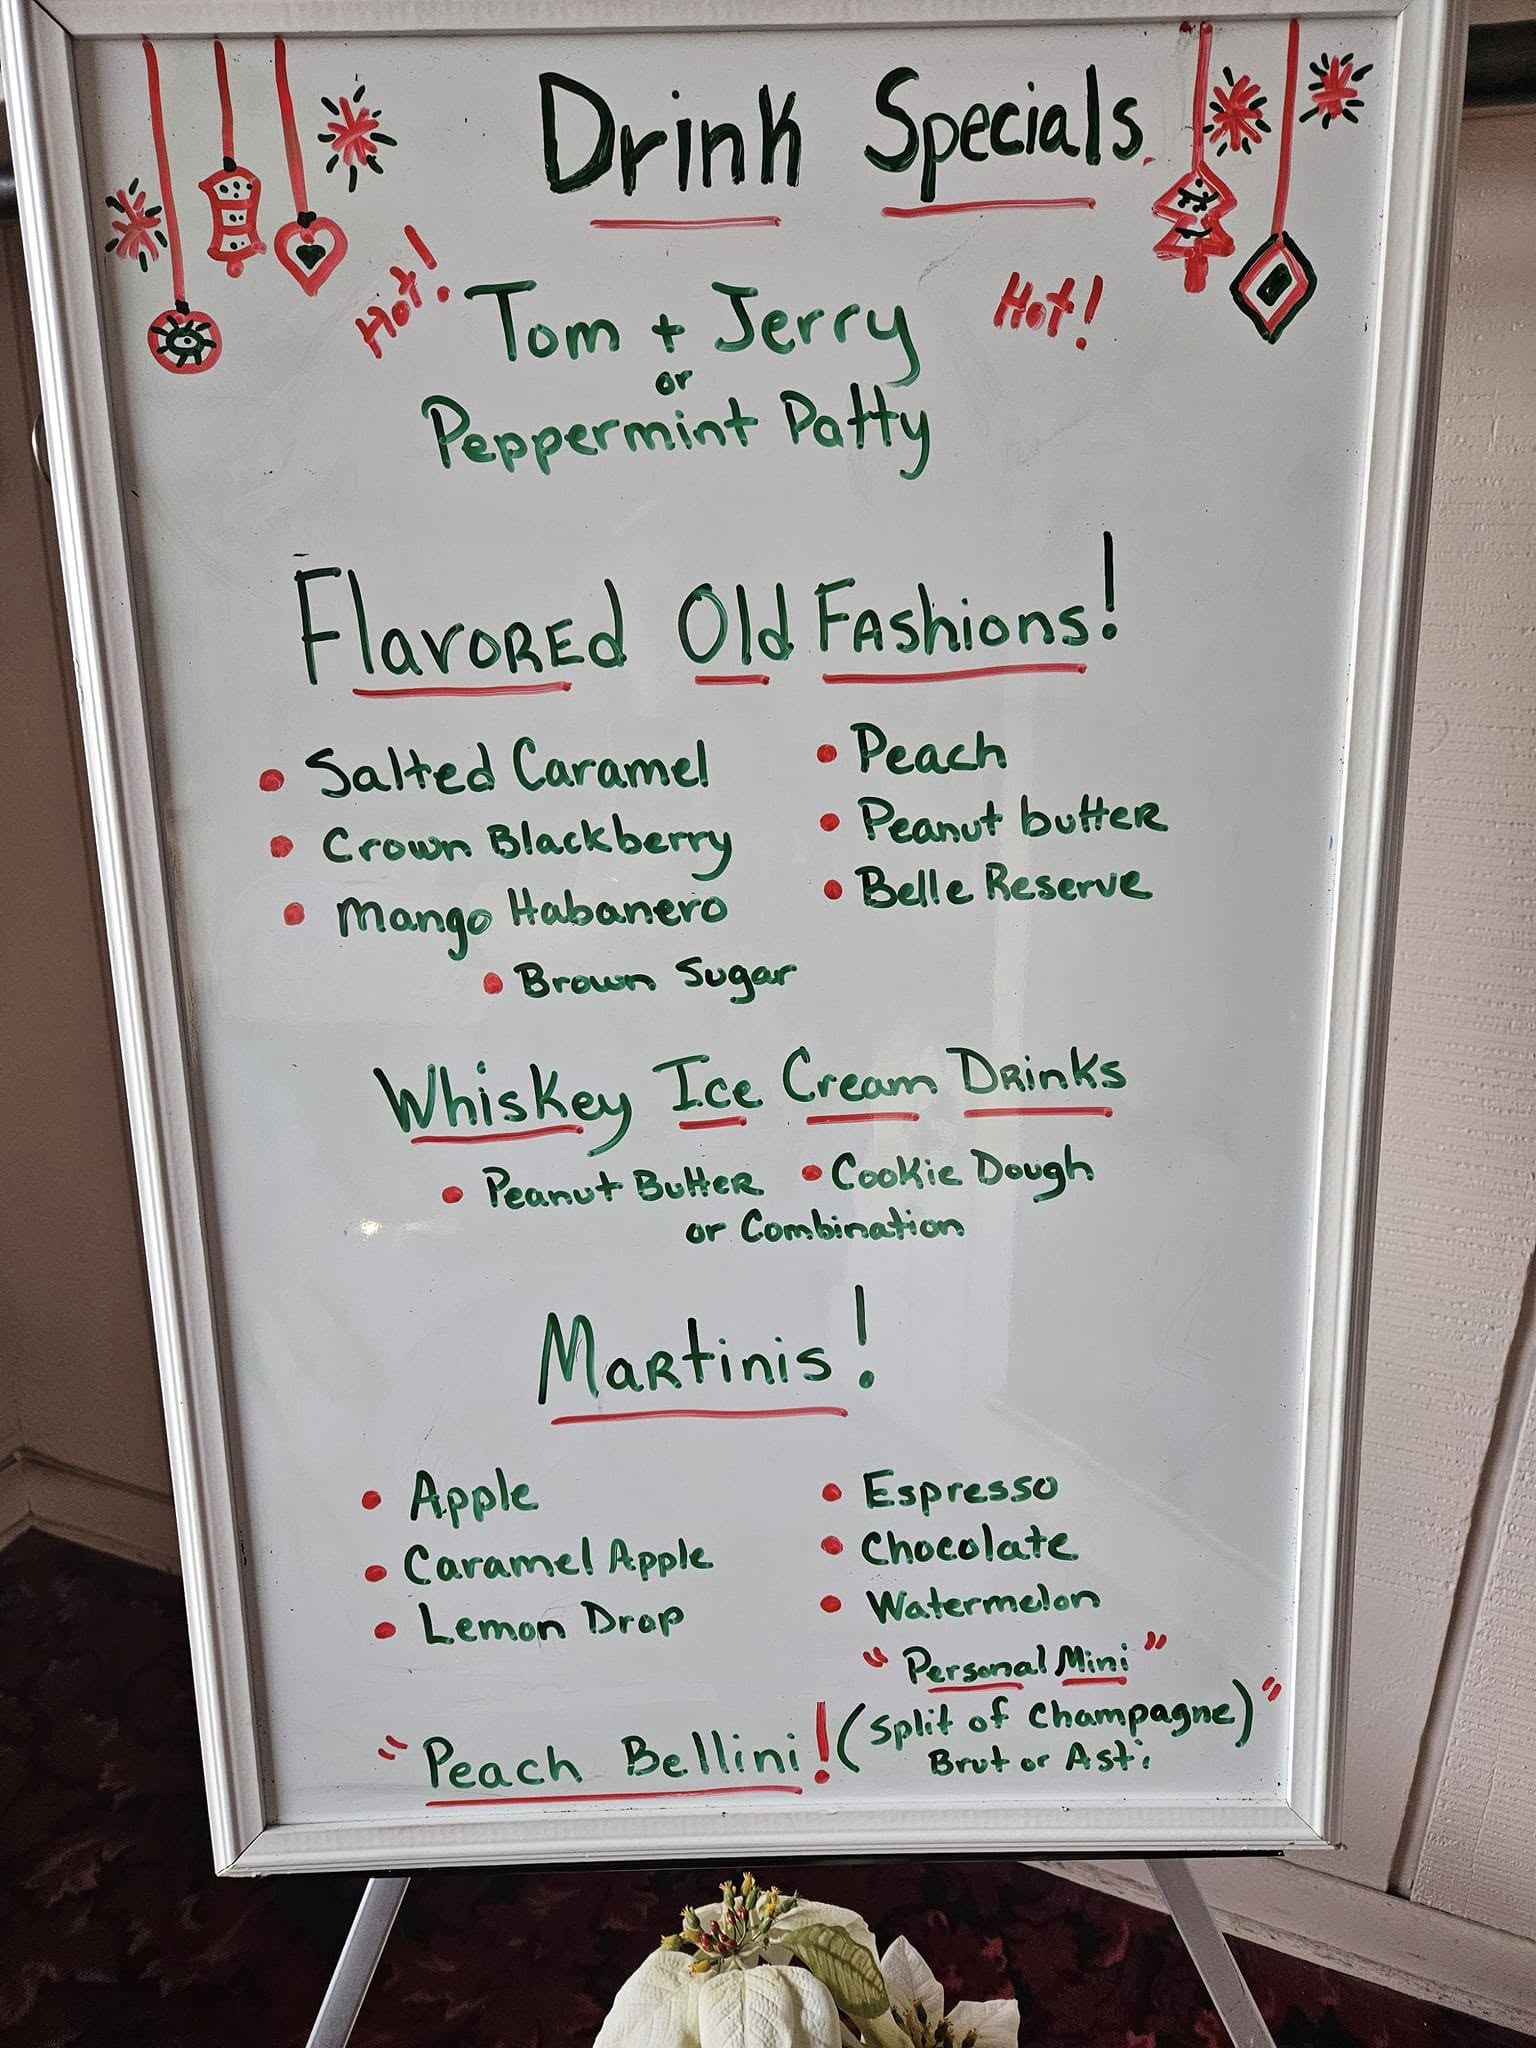 Drink Specials
Hot! Tom + Jerry Hot!
or
Peppermint Patty
Flavored Old Fashions!
• Salted Caramel
• Crown Blackberry
• Mango Habanero
• Peach
• Peanut butter
• Belle Reserve
• Brown Sugar
Whiskey Ice Cream Drinks
• Peanut Butter • Cookie Dough
or Combination
Martinis!
• Apple
• Caramel Apple
• Lemon Drop
• Espresso
• Chocolate
• Watermelon
"Personal Mini"
"Peach Bellini! (Split of Champagne)"
Brut or Asti